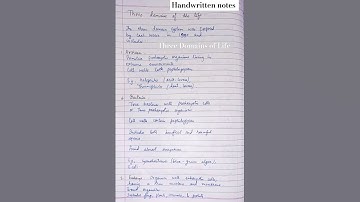 Handwritten notes
Three Domains of the life
The three domain system was proposed
by Carl Woese in 1990 and
includes
Three Domains of Life
1. Archaea:
Primitive prokaryotic organisms living in
extreme environments
Cell walls lack peptidoglycan
E.g.
2. Bacteria:
True bacteria with prokaryotic cells
Cell walls contain peptidoglycan
Includes both beneficial and harmful
species
Found almost everywhere
E.g. Cyanobacteria (blue-green algae),
E.coli
3. Eukarya: Organisms with eukaryotic cells
having a true nucleus and membrane
bound organelles
Includes fungi, plants, animals, & protists